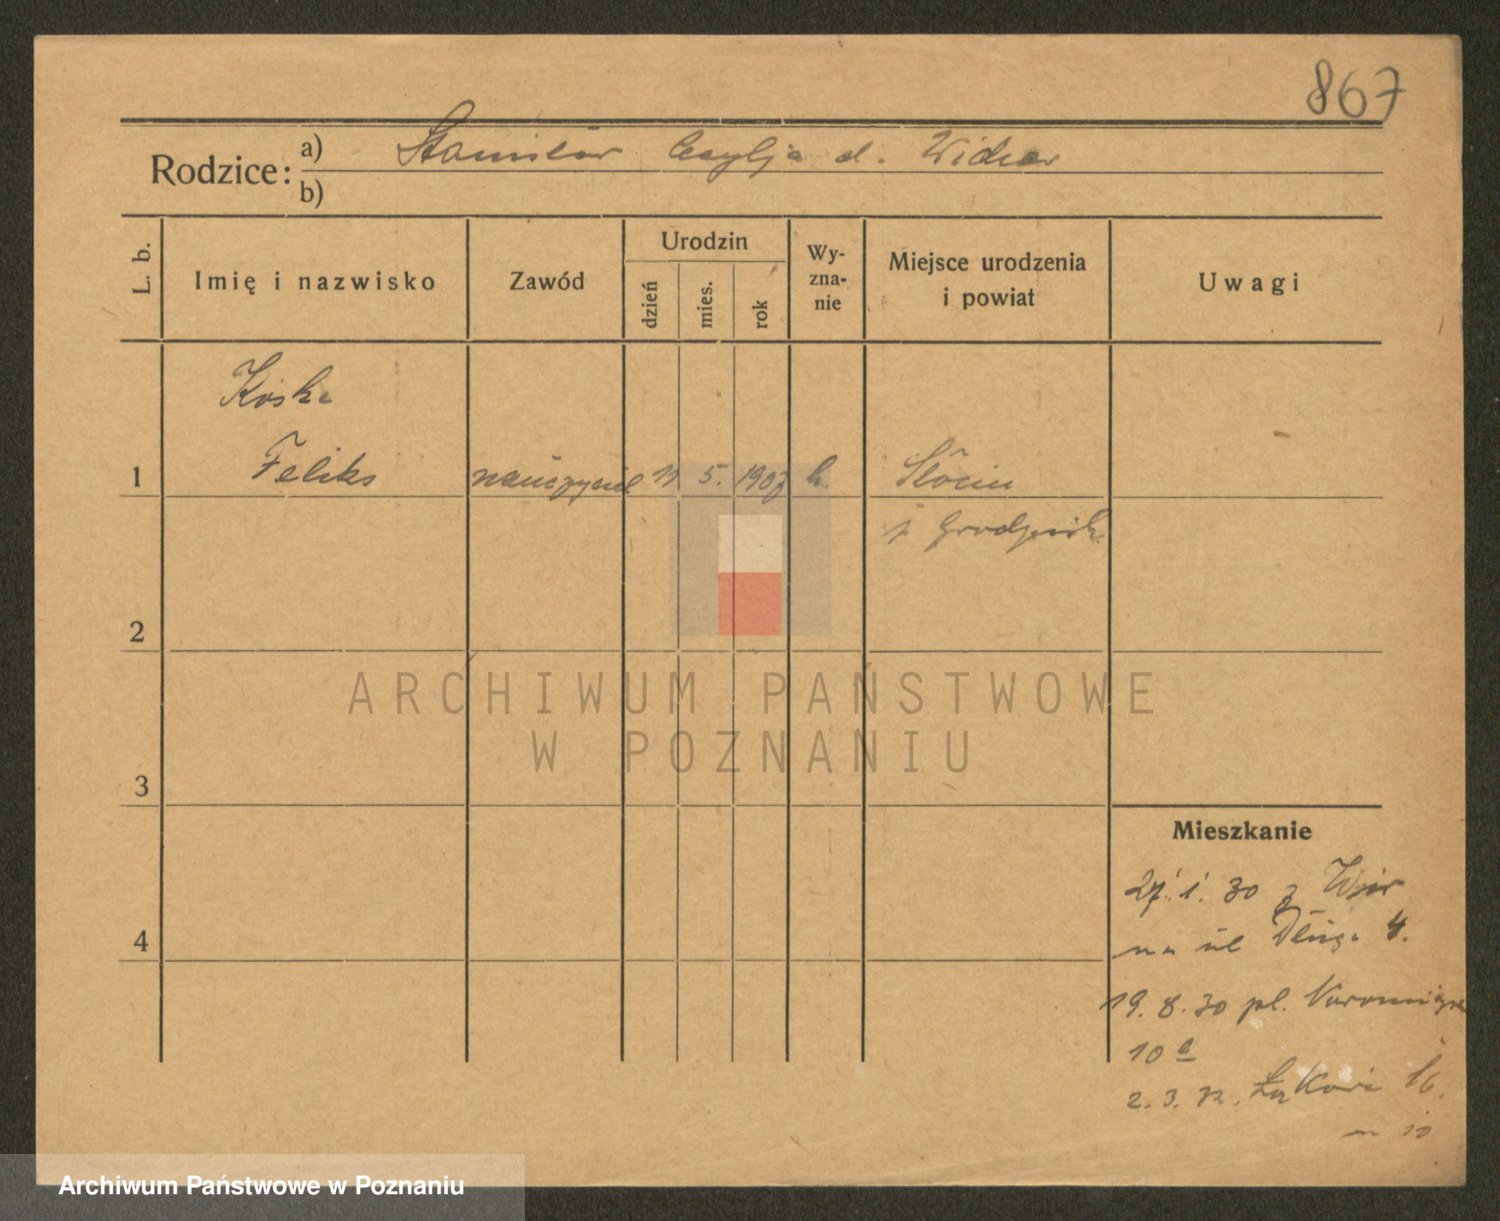 867
Rodzice: a) Stanisław Cecylja d. Wicher
b)
L. b.
Imię i nazwisko
Zawód
Urodzin
dzień
mies.
rok
Wy-
zna-
nie
Miejsce urodzenia
i powiat
Uwagi
Koska
1 Feliks nauczyciel 11 5. 1907 k.
Słocin
p Grodzisk
2
3
4
Mieszkanie
27. 1. 30 z
na ul Długa 4.
19. 8. 30 pl.
10 a
2. 3. 32. Łąkowa 16.
m 10
ARCHIWUM PAŃSTWOWE
W POZNANIU
Archiwum Państwowe w Poznaniu